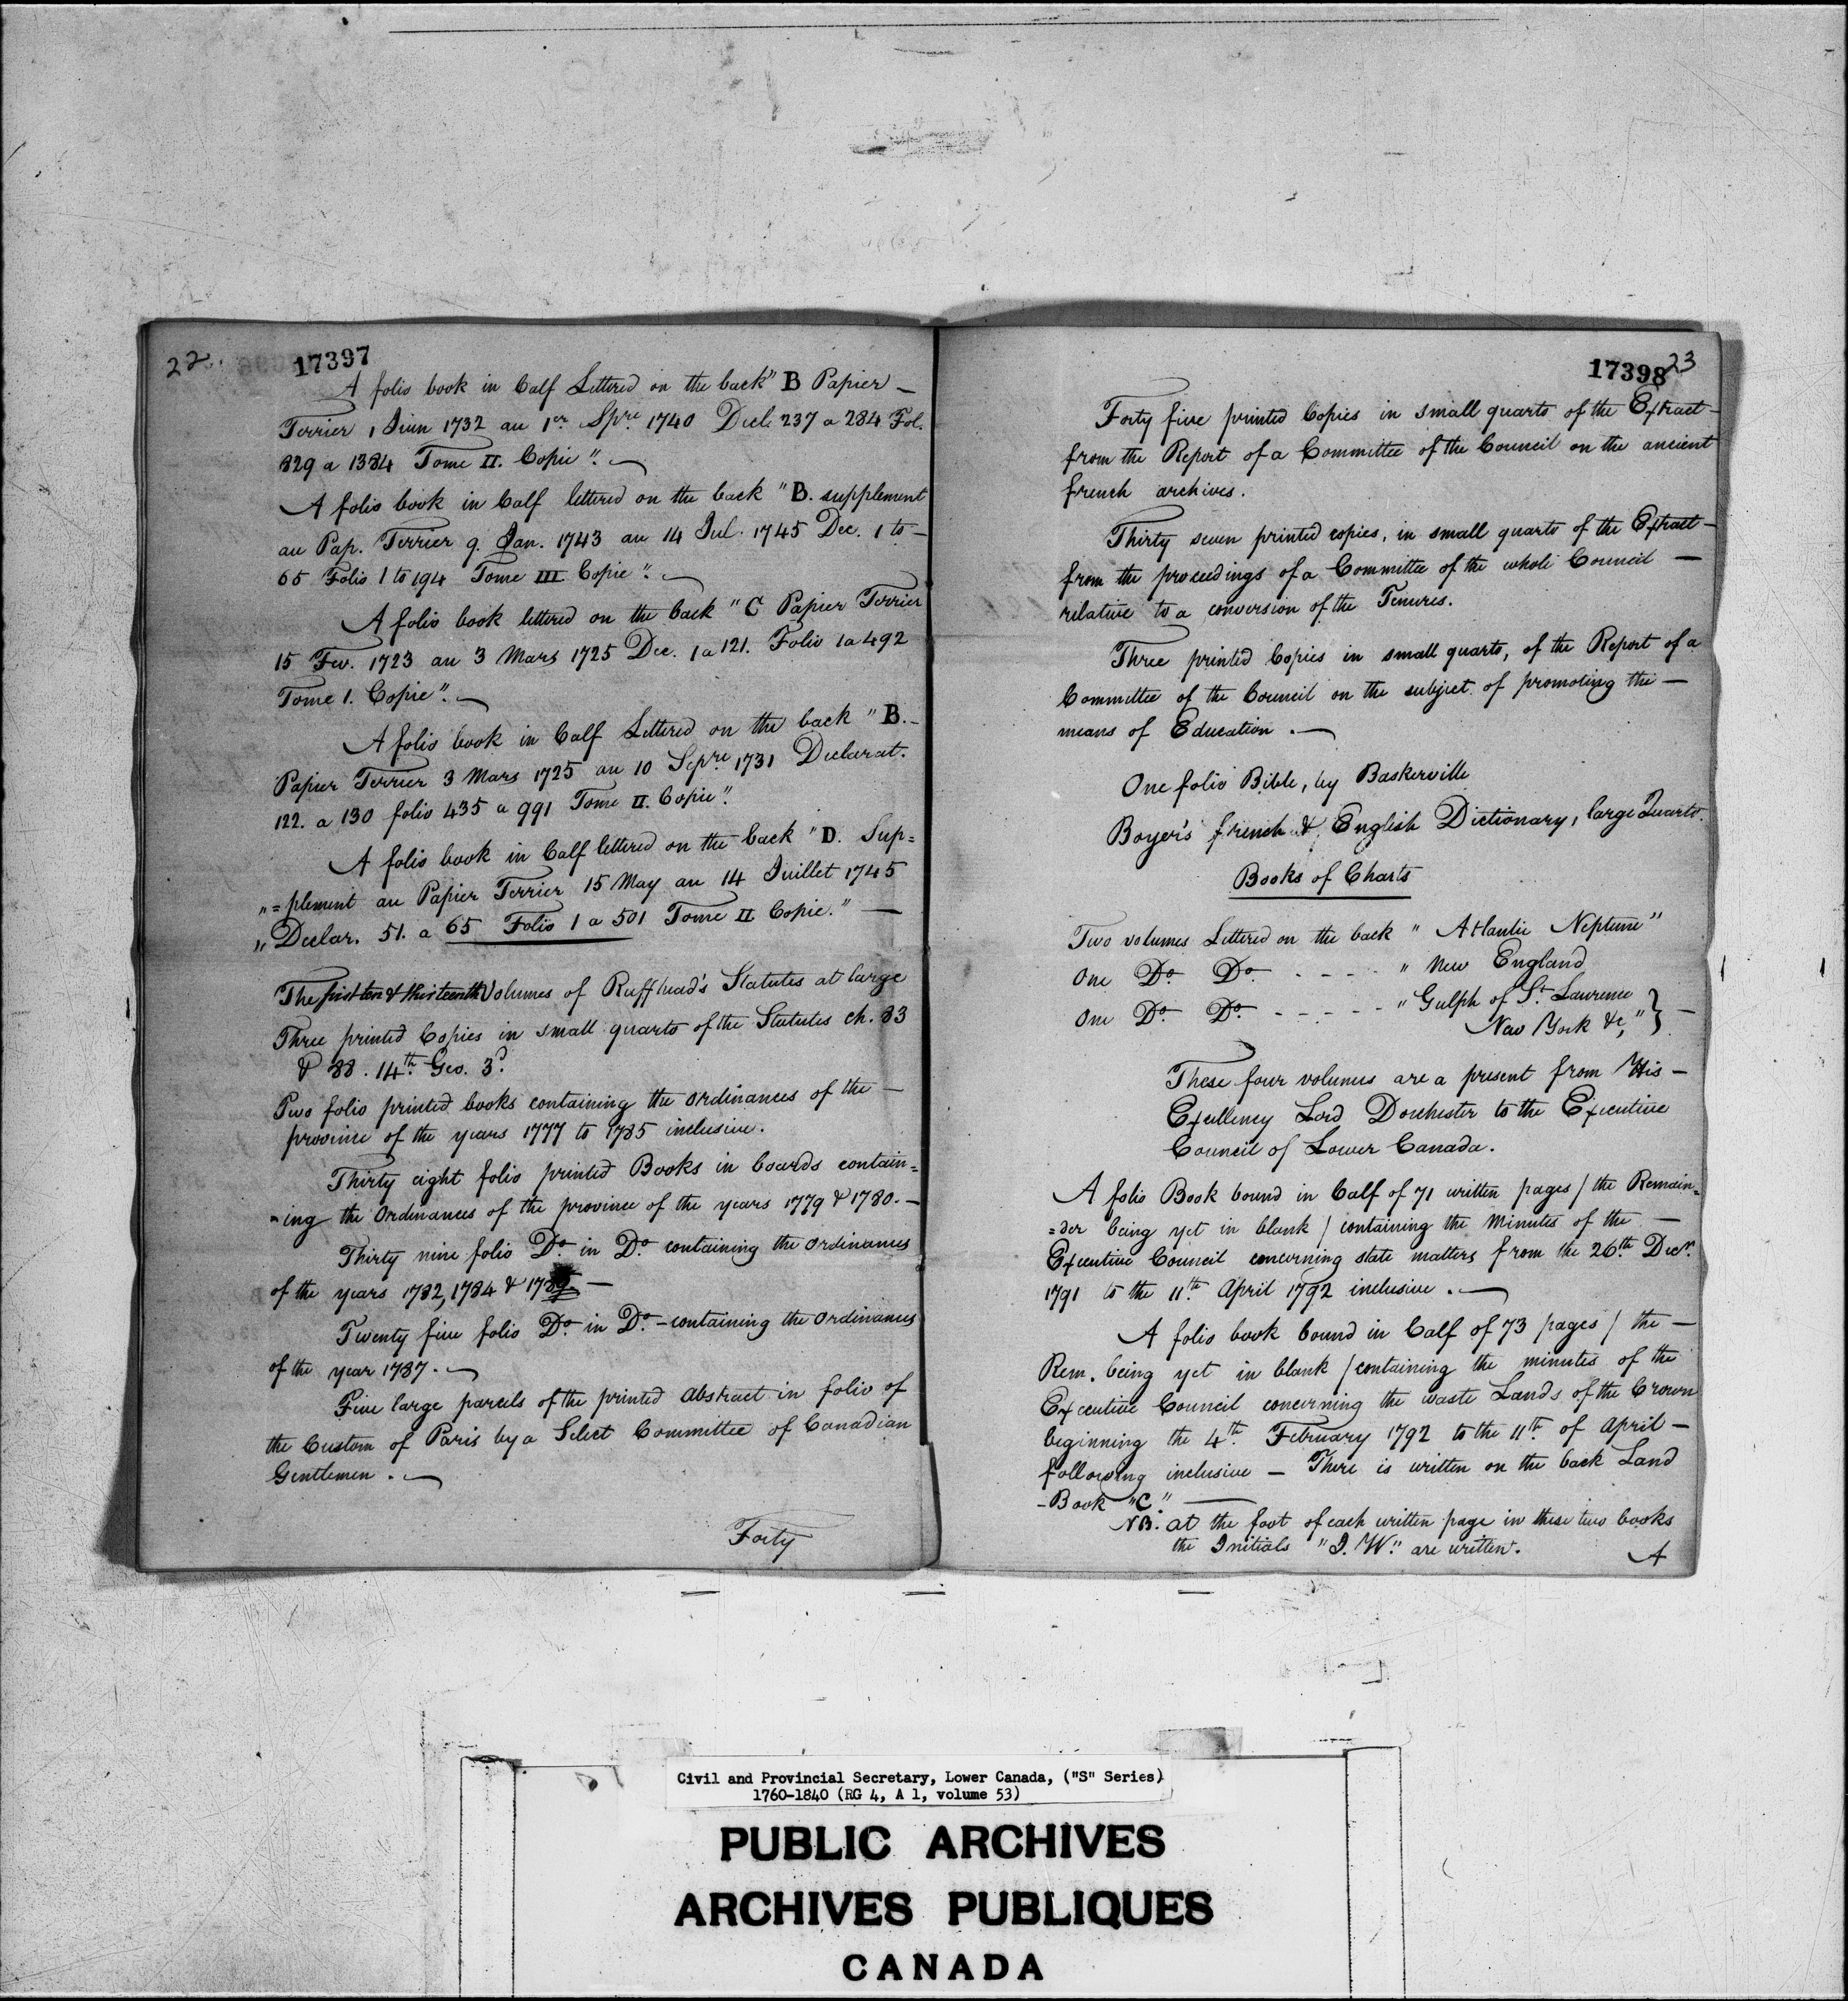 22.
17397
A folio book in Calf Lettered on the back "B Papier -
Terrier 1 Juin 1732 au 1er Spre 1740 Decl. 237 a 284 Fol.
829 a 1384 Tome II. Copie".
A folio book in Calf lettered on the back "B. supplement
au Pap. Terrier 9. Jan. 1743 au 14 Jul. 1745 Dec. 1 to -
65 Folio 1 to 194 Tome III Copie".
A folio book lettered on the back "C Papier Terrier
15 Fev. 1723 au 3 Mars 1725 Dec. 1 a 121. Folio 1 a 492
Tome 1. Copie".
A folio book in Calf Lettered on the back "B. -
Papier Terrier 3 Mars 1725 au 10 Sepre 1731 Declarat.
122. a 130 folio 435 a 991 Tome II. Copie".
A folio book in Calf lettered on the back "D. Sup=
"=plement au Papier Terrier 15 May au 14 Juillet 1745
"Declar. 51. a 65 Folio 1 a 501 Tome II Copie." -
The first ten & thirteenth Volumes of Ruffhead's Statutes at large
Three printed Copies in small quarto of the Statutes ch. 83
& 88. 14th Geo. 3d.
Two folio printed books containing the ordinances of the -
province of the years 1777 to 1785 inclusive.
Thirty eight folio printed Books in boards contain=
=ing the Ordinances of the province of the years 1779 & 1780. -
Thirty nine folio Do. in Do. containing the ordinances
of the years 1782, 1784 & 1785 -
Twenty five folio Do. in Do. - containing the ordinances
of the year 1787.
Five large parcels of the printed abstract in folio of
the Custom of Paris by a Select Committee of Canadian
Gentlemen.
Forty
17398
23
Forty five printed Copies in small quarto of the Extract -
from the Report of a Committee of the Council on the ancient
french archives.
Thirty seven printed copies, in small quarto of the Extract -
from the proceedings of a Committee of the whole Council -
relative to a conversion of the Tenures.
Three printed Copies in small quarto, of the Report of a
Committee of the Council on the subject of promoting the -
means of Education.
One folio Bible, by Baskerville
Boyer's french & English Dictionary, large Quarto.
Books of Charts
Two volumes Lettered on the back "Atlantic Neptune"
One Do. Do. - - - - "New England
One Do. Do. - - - - - "Gulph of St. Lawrence
New York &c," } -
These four volumes are a present from His -
Excellency Lord Dorchester to the Executive
Council of Lower Canada.
A folio Book bound in Calf of 71 written pages / the Remain=
=der being yet in blank / containing the Minutes of the -
Executive Council concerning state matters from the 26th Decr.
1791 to the 11th April 1792 inclusive.
A folio book bound in Calf of 73 pages / the -
Rem. being yet in blank / containing the minutes of the
Executive Council concerning the waste Lands of the Crown
beginning the 4th February 1792 to the 11th of April -
following inclusive - There is written on the back Land
- Book "C."
NB. at the foot of each written page in these two books
the Initials "J. W." are written.
A
Civil and Provincial Secretary, Lower Canada, ("S" Series)
1760-1840 (RG 4, A 1, volume 53)
PUBLIC ARCHIVES
ARCHIVES PUBLIQUES
CANADA